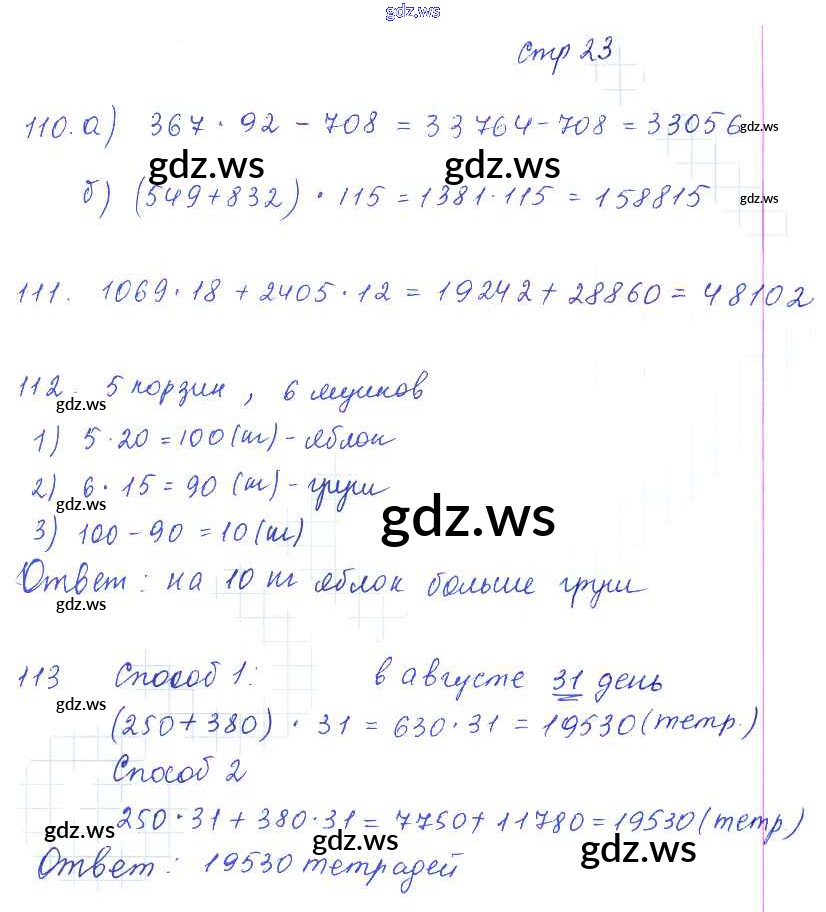 gdz.ws
стр 23
110. а) 367 · 92 - 708 = 33764 - 708 = 33056 gdz.ws
gdz.ws gdz.ws
б) (549 + 832) · 115 = 1381 · 115 = 158815 gdz.ws
111. 1069 · 18 + 2405 · 12 = 19242 + 28860 = 48102
112. 5 корзин, 6 ящиков
gdz.ws
1) 5 · 20 = 100 (кг) - яблок
2) 6 · 15 = 90 (кг) - груш
gdz.ws gdz.ws
3) 100 - 90 = 10 (кг)
Ответ: на 10 кг яблок больше груш
gdz.ws
113 Способ 1: в августе 31 день
gdz.ws
(250 + 380) · 31 = 630 · 31 = 19530 (тетр.)
Способ 2
250 · 31 + 380 · 31 = 7750 + 11780 = 19530 (тетр.)
gdz.ws gdz.ws gdz.ws
Ответ: 19530 тетрадей